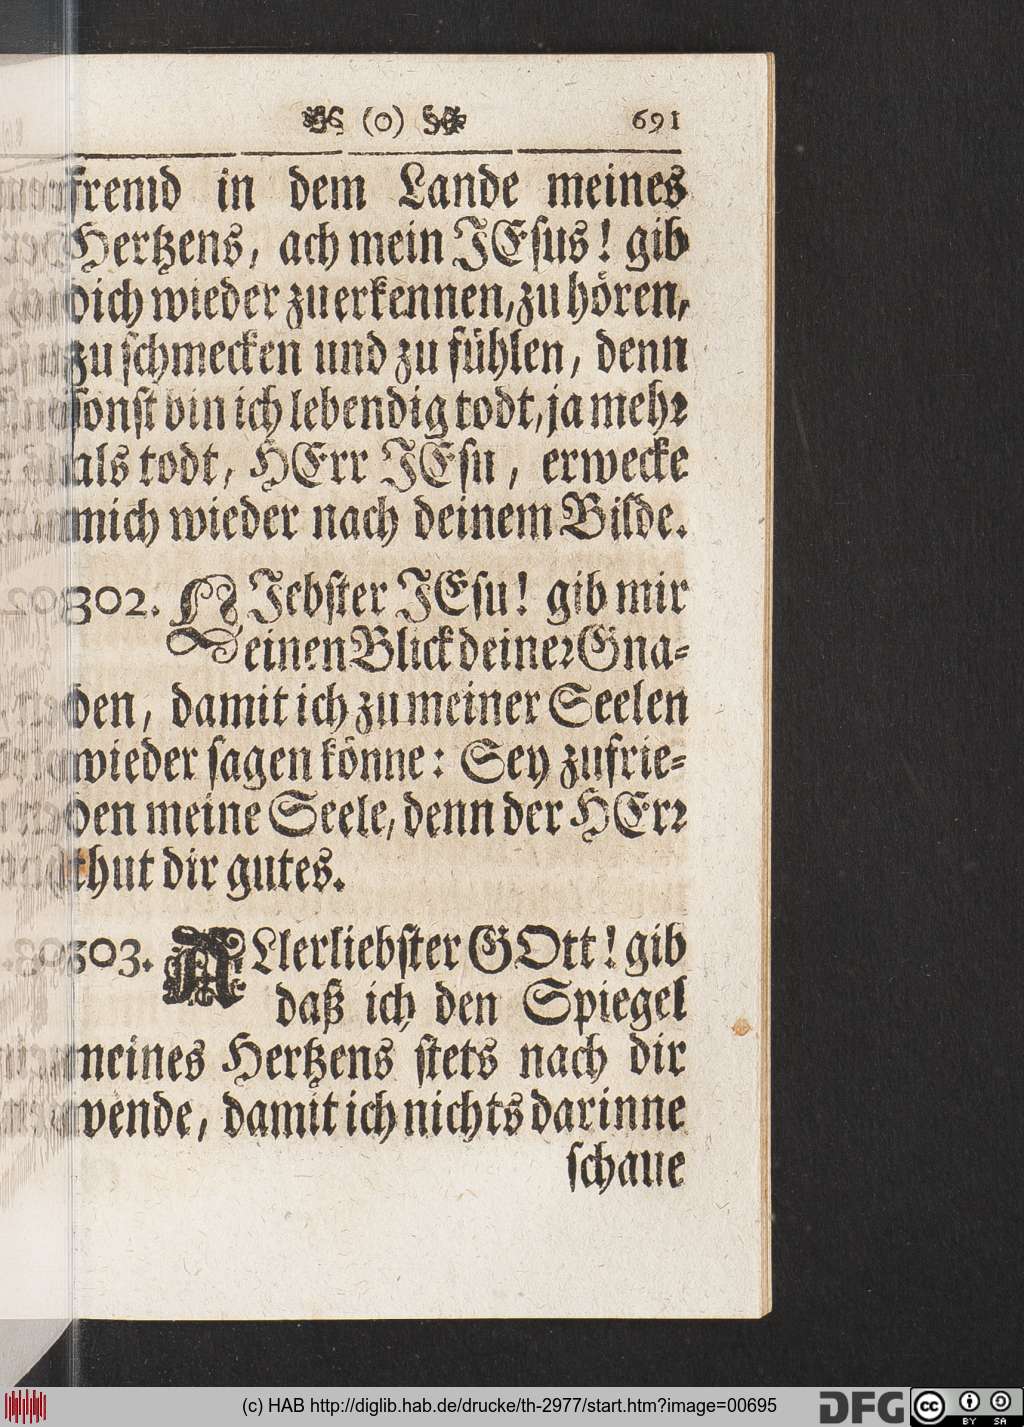 (o) 691
fremd in dem Lande meines
Hertzens, ach mein JEsus! gib
dich wieder zu erkennen, zu hören,
zu schmecken und zu fühlen, denn
sonst bin ich lebendig todt, ja mehr
als todt, HErr JEsu, erwecke
mich wieder nach deinem Bilde.
302. LJebster JEsu! gib mir
einen Blick deiner Gna-
den, damit ich zu meiner Seelen
wieder sagen könne: Sey zufrie-
den meine Seele, denn der HErr
thut dir gutes.
303. ALlerliebster GOtt! gib
daß ich den Spiegel
meines Hertzens stets nach dir
wende, damit ich nichts darinne
schaue
(c) HAB http://diglib.hab.de/drucke/th-2977/start.htm?image=00695
DFG
cc BY SA